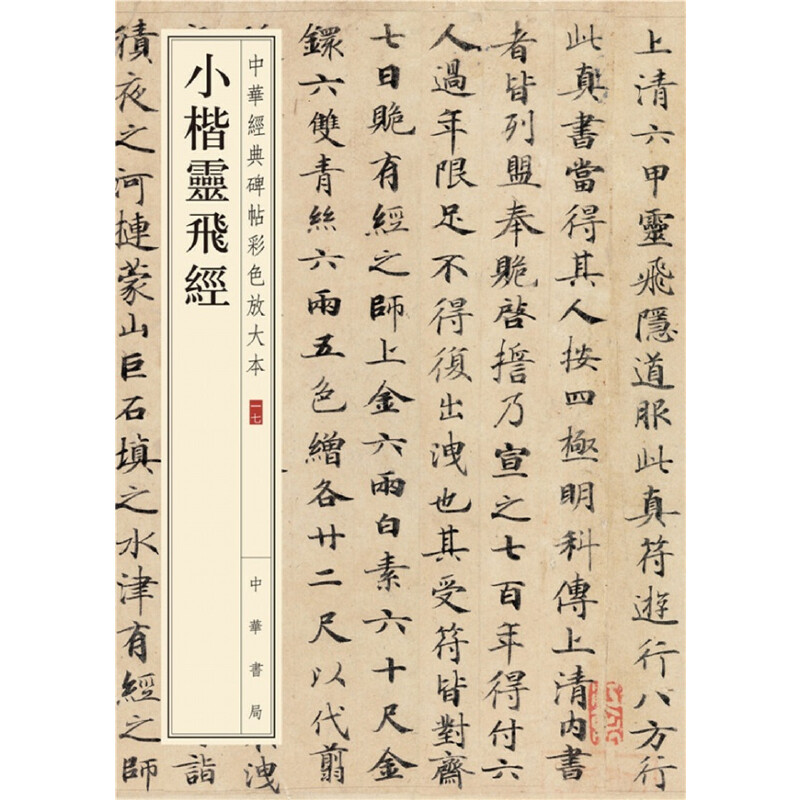 上清六甲靈飛隱道服此真符遊行八方行
此真書當得其人按四極明科傳上清內書
者皆列盟奉贶啓誓乃宣之七百年得付六
人過年限足不得復出洩也其受符皆對齋
七日贶有經之師上金六兩白素六十尺金
鐶六雙青絲六兩五色繒各廿二尺以代翦
洩
詣
積夜之河摙蒙山巨石填之水津有經之師
中華經典碑帖彩色放大本
一七
中華書局
小楷靈飛經